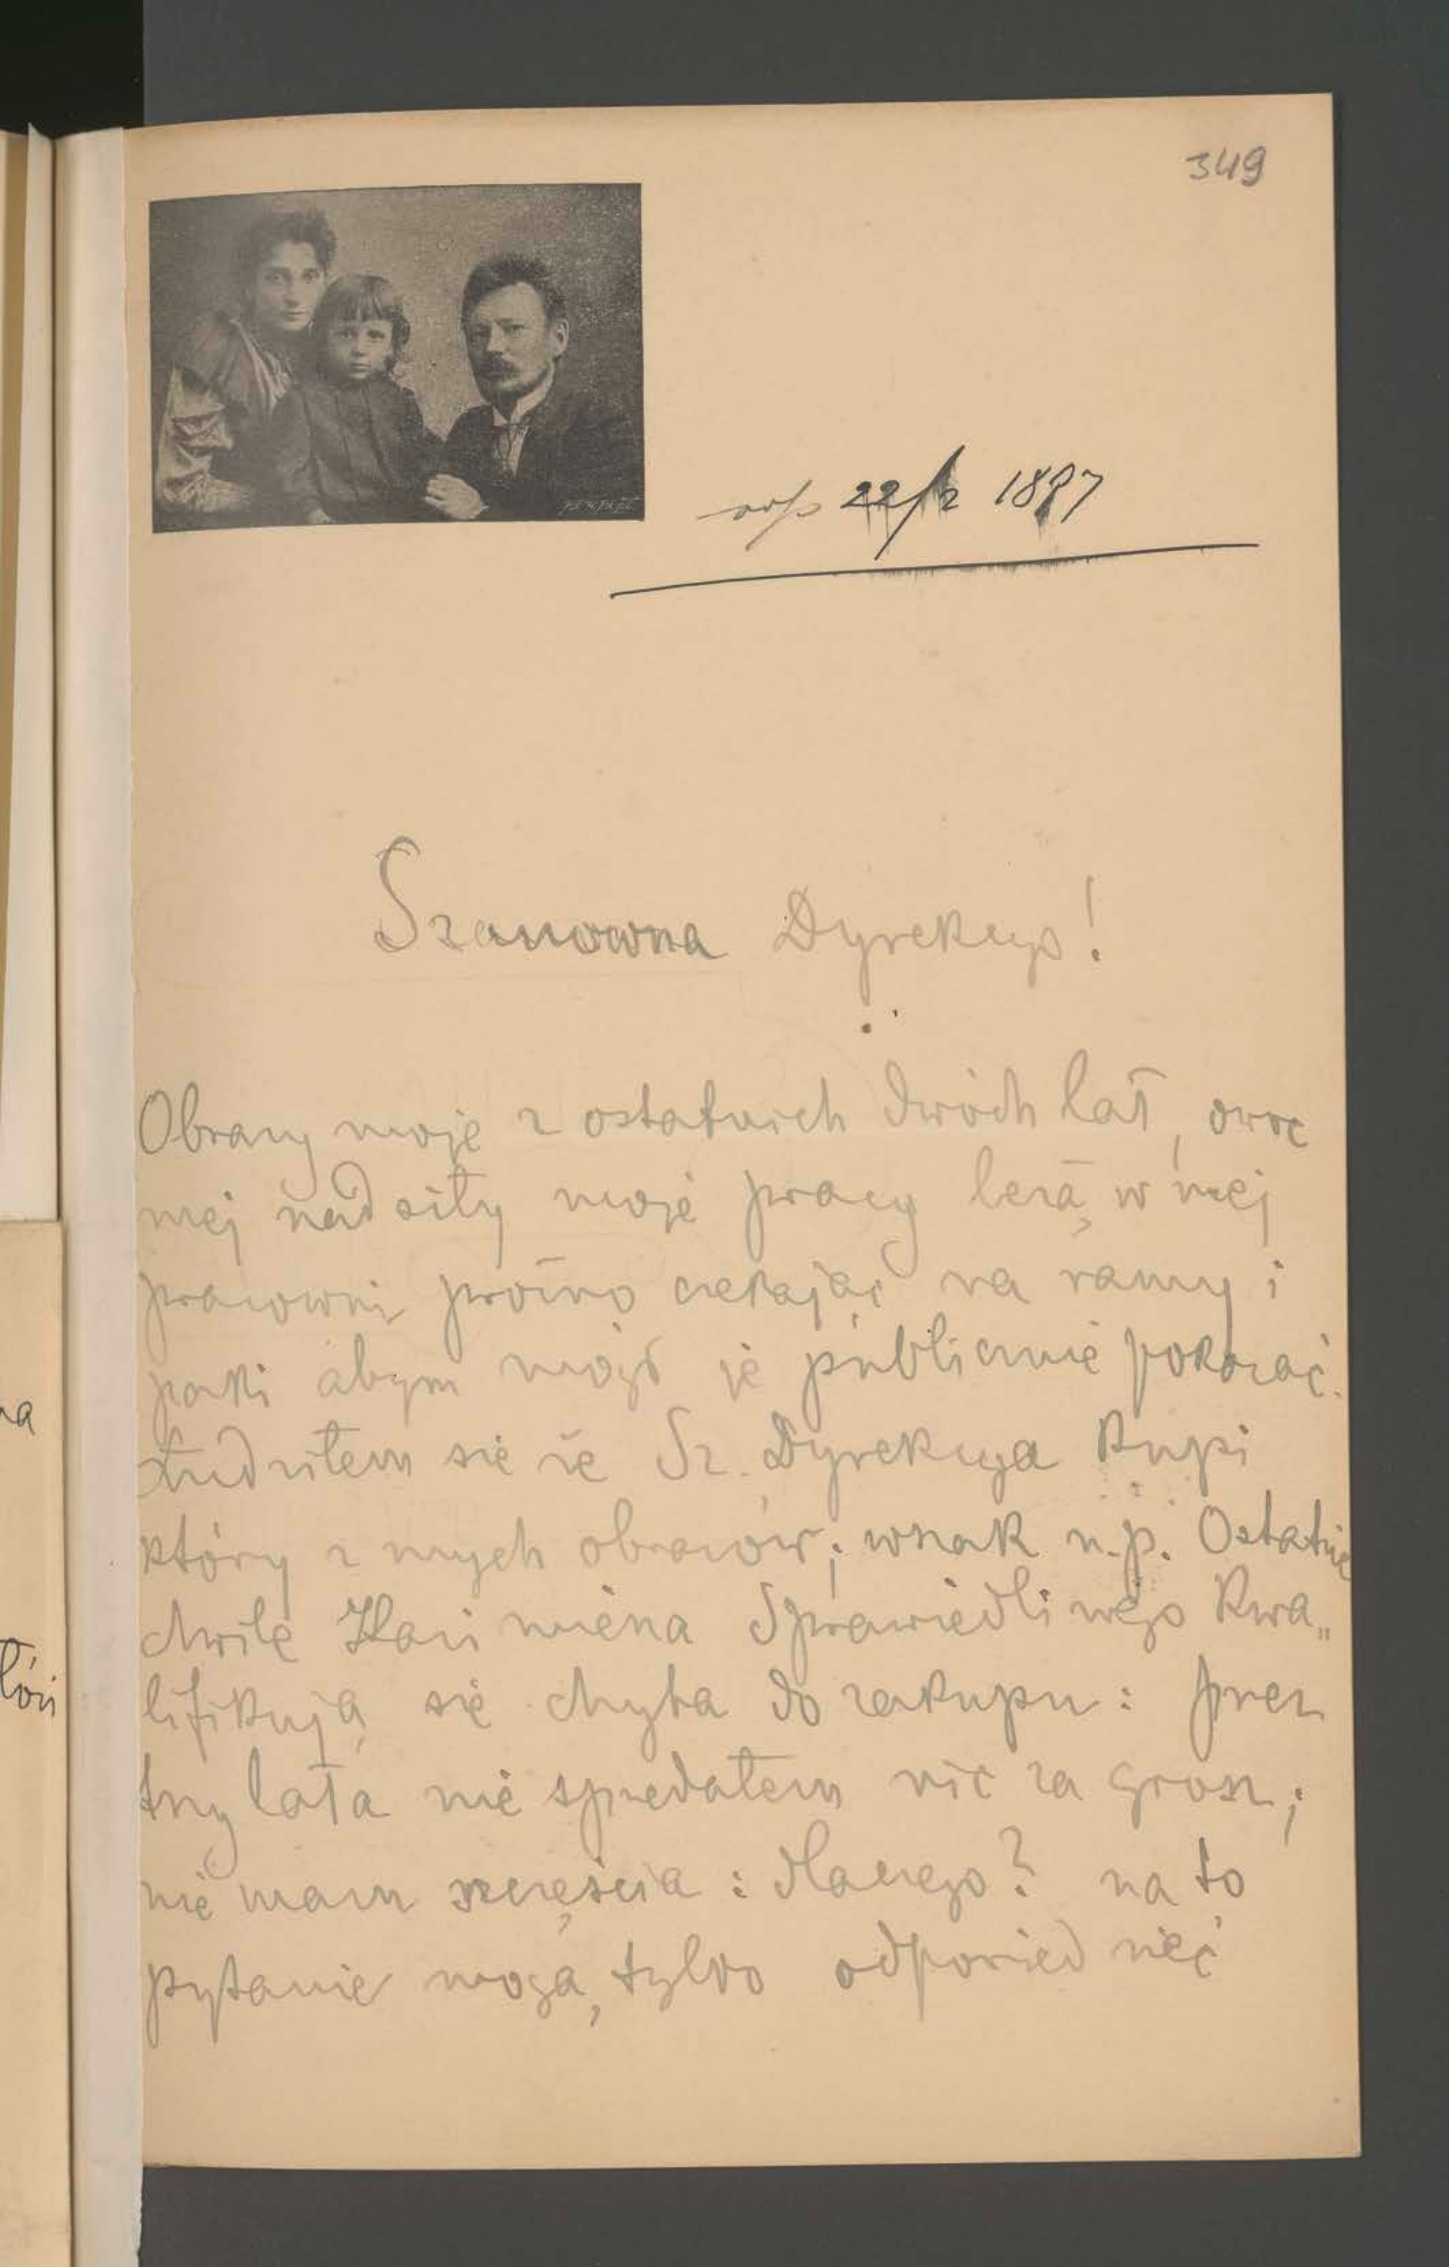 349
odp 22/2 1897
Szanowna Dyrekcyo!
Obrazy moje z ostatnich dwóch lat, owoc
mej nad siły moje pracy leżą w mej
pracowni próżno czekając na ramy i
paki abym mógł je publicznie pokazać.
Łudziłem się że Sz. Dyrekcya kupi
który z mych obrazów; wszak n.p. Ostatnie
chwile Kazimierza Sprawiedliwego kwa„
lifikują się chyba do zakupu: przez
trzy lata nie sprzedałem nic za grosz;
nie mam szczęścia: dlaczego? na to
pytanie mogą tylko odpowiedzieć
na